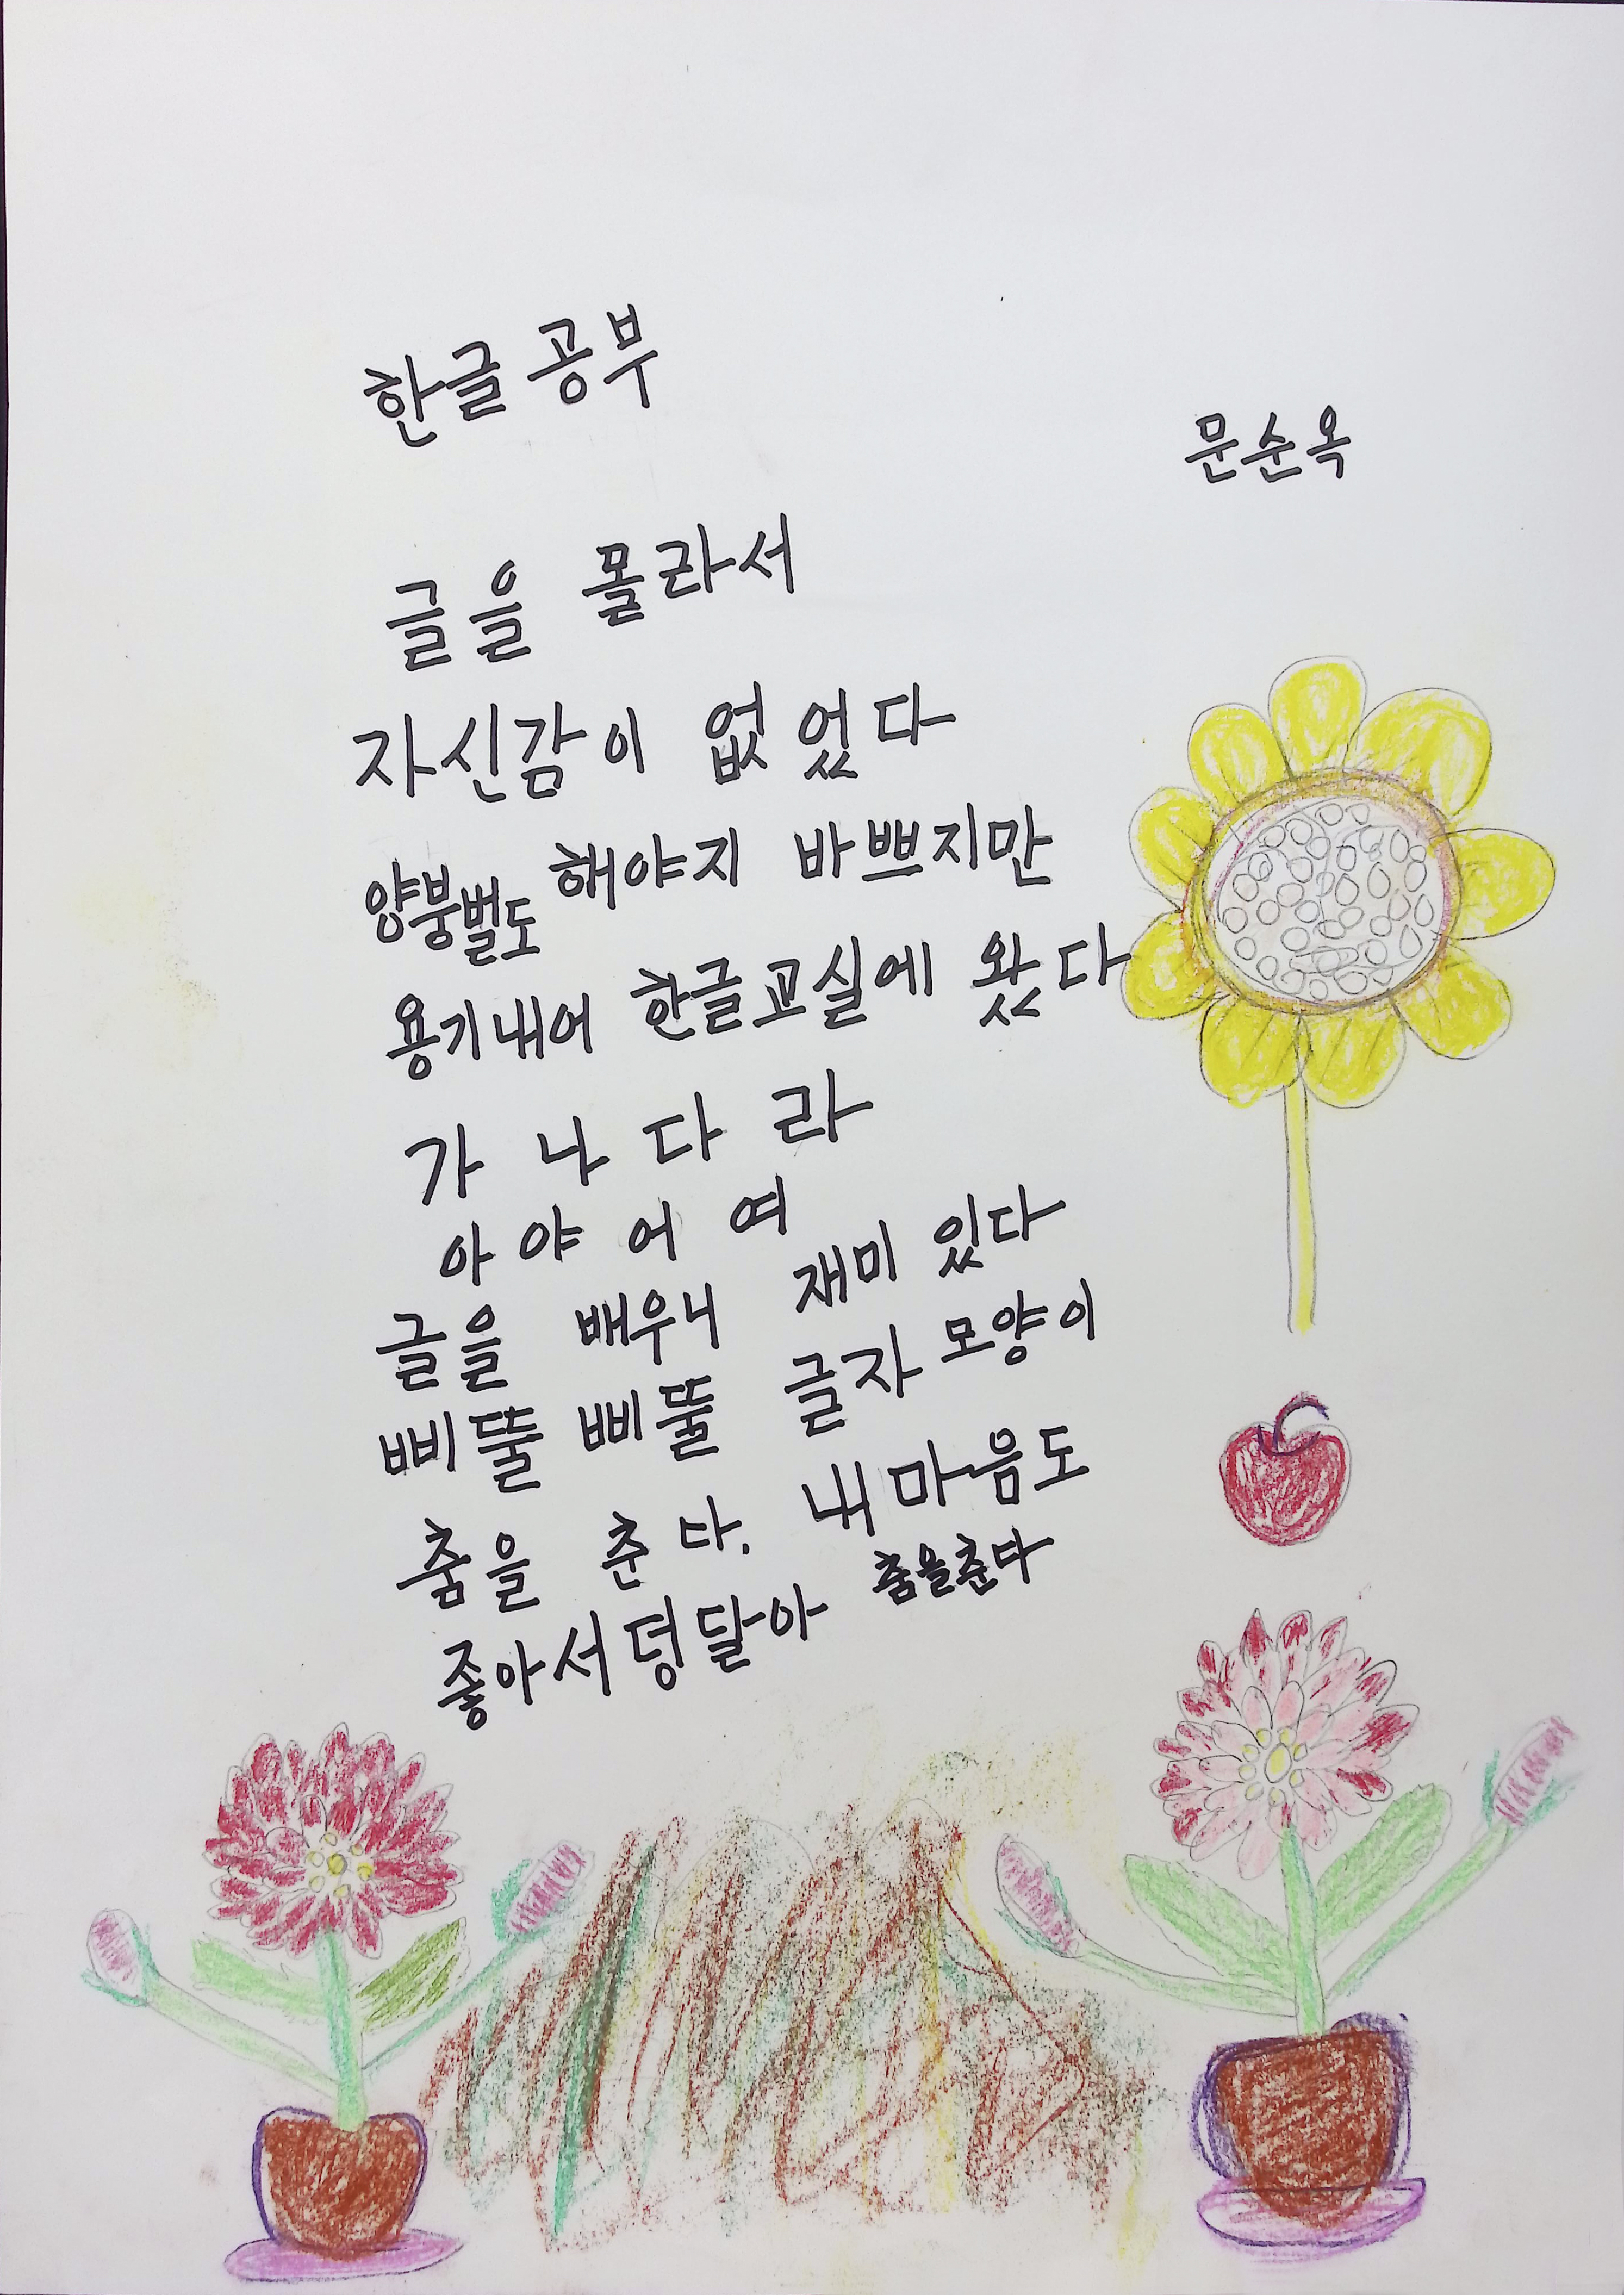 한글 공부
문순옥
글을 몰라서
자신감이 없었다
양붕벌도 해야지 바쁘지만
용기내어 한글교실에 왔다
가 나 다 라
아 야 어 여
글을 배우니 재미 있다
삐뚤 삐뚤 글자 모양이
춤을 춘다. 내 마음도
좋아서 덩달아 춤을춘다